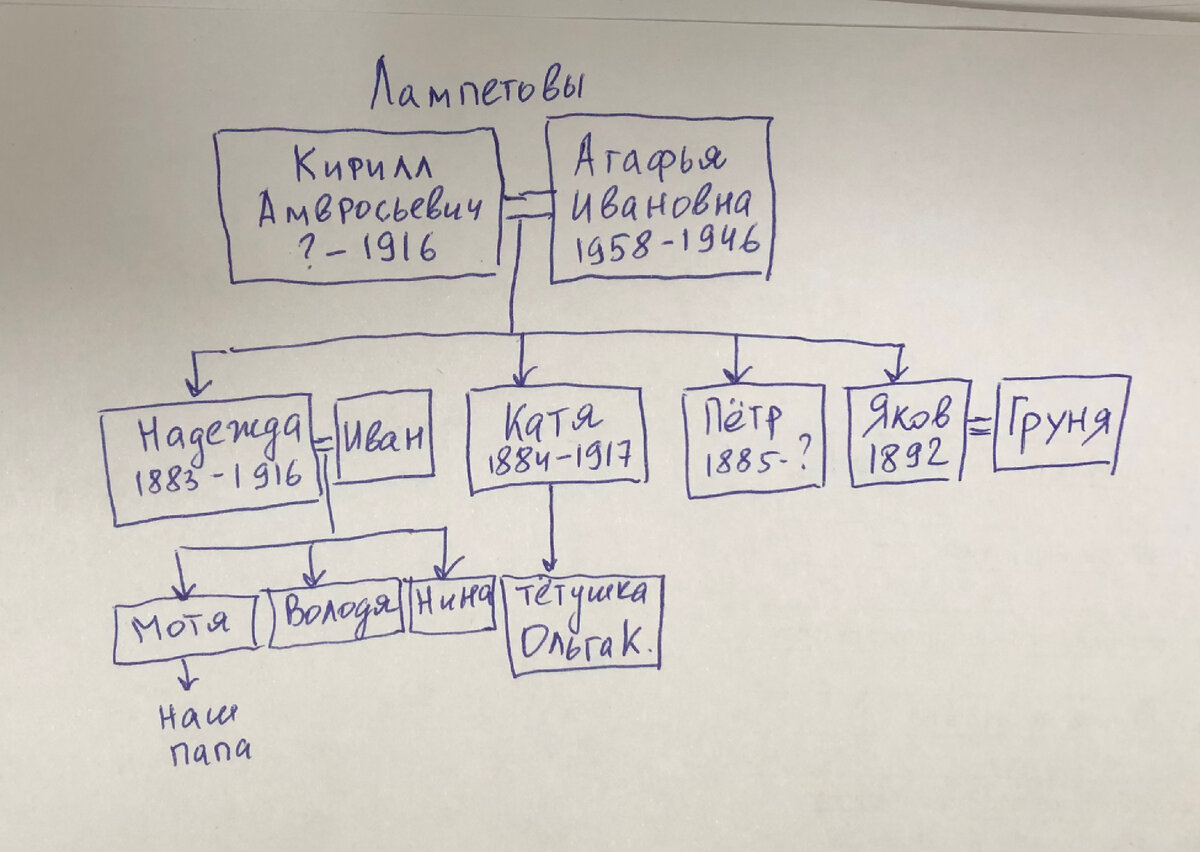 Лампетовы
Кирилл
Амвросьевич
? – 1916
Агафья
Ивановна
1958 – 1946
Надежда
1883 – 1916
Иван
Катя
1884 – 1917
Пётр
1885 - ?
Яков
1892
Груня
Мотя
Володя
Нина
тётушка
Ольга К.
наш
папа